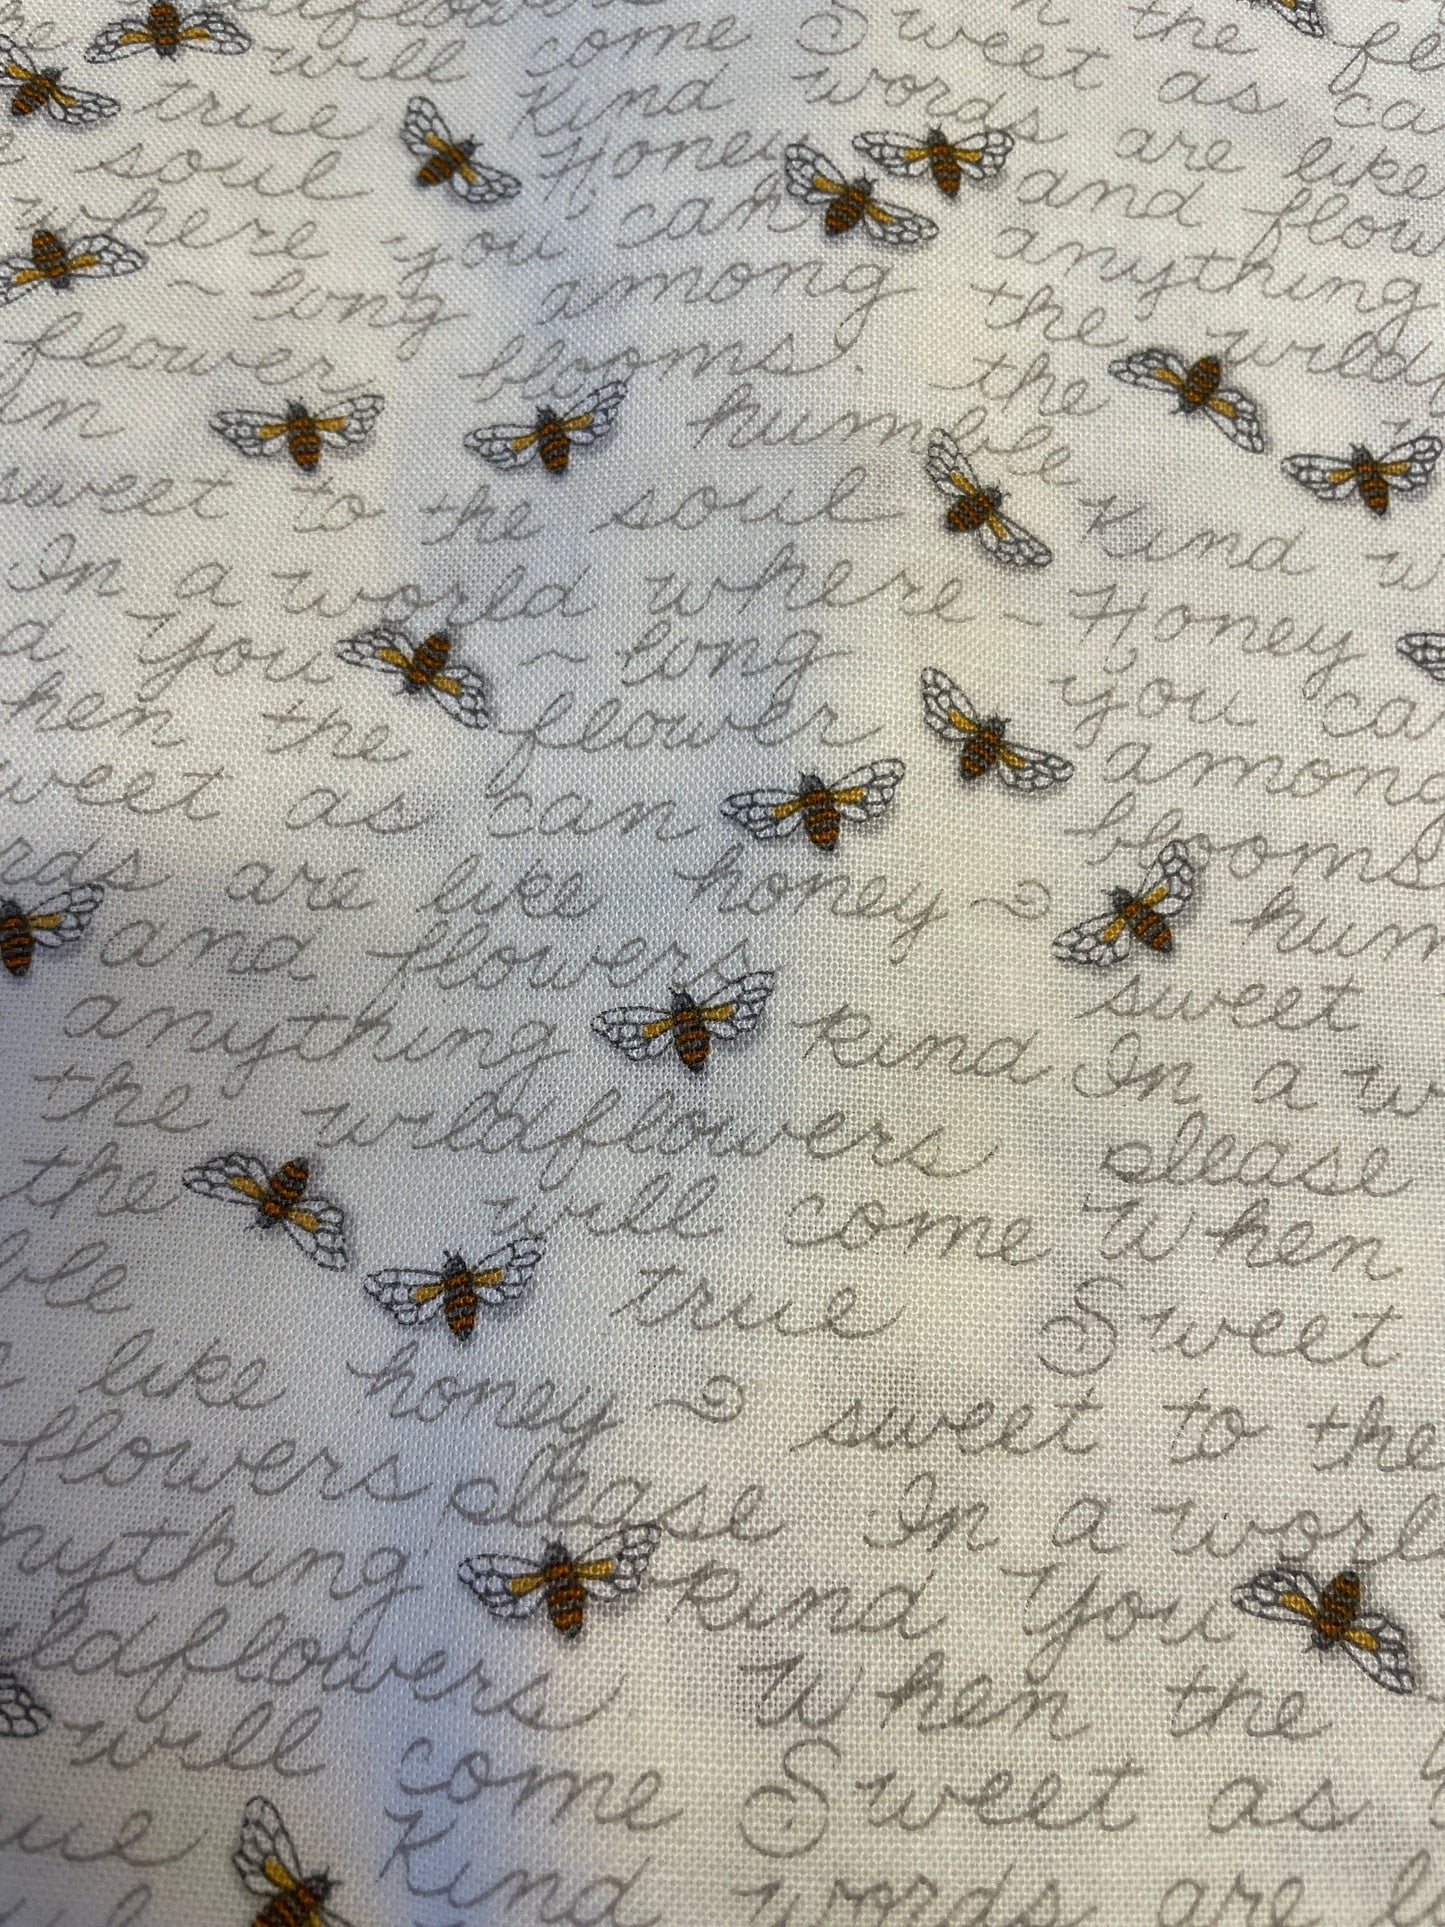 wildflowers in the
will come Sweet as ca
true Kind words are like
soul Honey and flow
where you can anything
~ long among the wild
flower blooms. the
in humble Kind w
sweet to the soul Honey
In a world where ~ you ca
d You ~ long among
hen the flower blooms
weet as can honey hum
rds are like kind sweet
and flowers In a w
anything please
the wildflowers When
the will come Sweet
ble true sweet to the
like honey In a worl
flowers please You
nything kind When the
ldflowers Sweet as
will come
ue Kind words are l